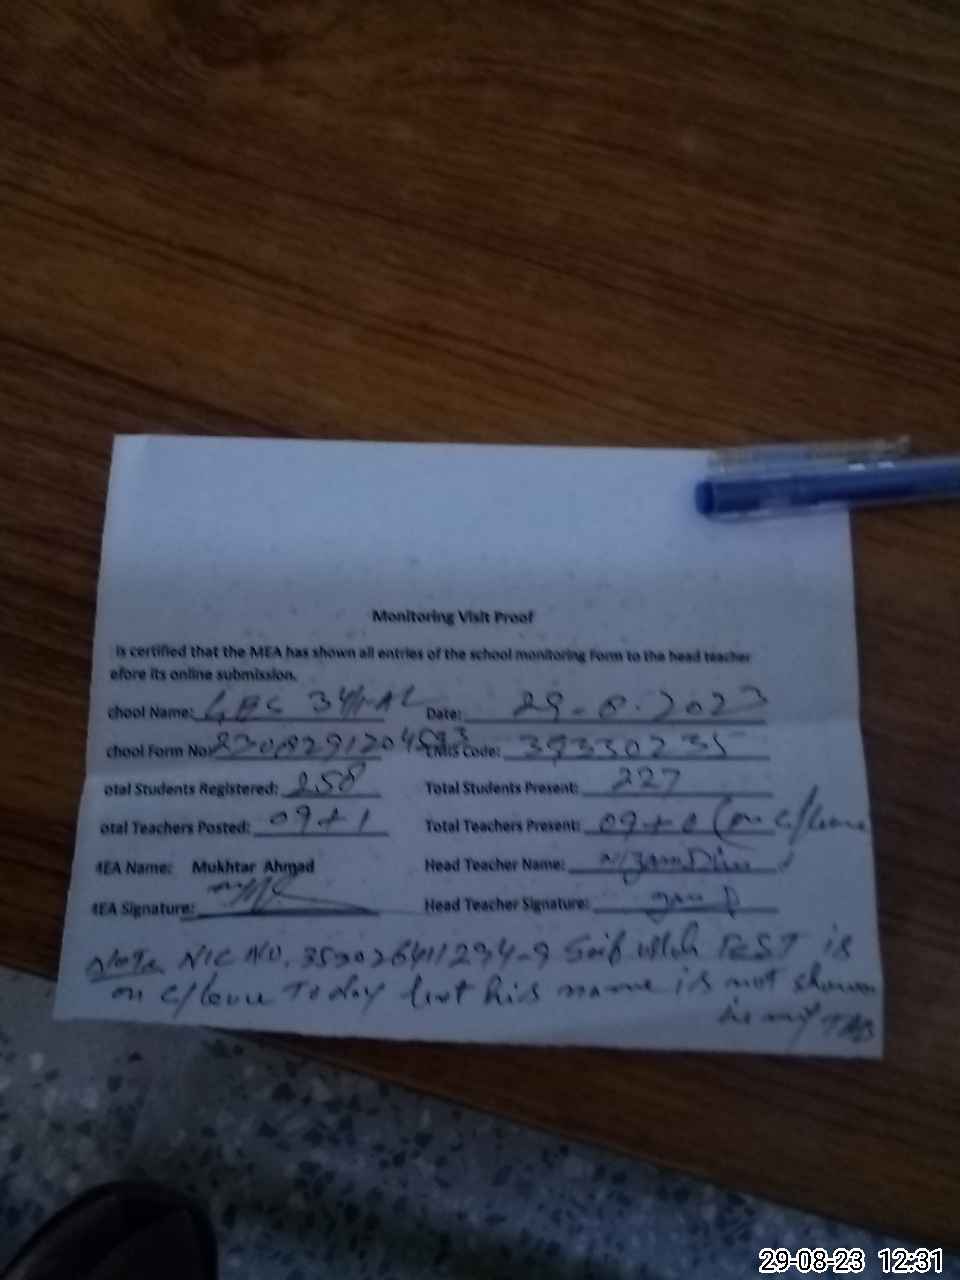 Monitoring Visit Proof
is certified that the MEA has shown all entries of the school monitoring Form to the head teacher
efore its online submission.
chool Name: GES 34/ Date: 29-8-2023
chool Form No: EMIS Code: 39330235
otal Students Registered: 258 Total Students Present: 227
otal Teachers Posted: 09+1 Total Teachers Present: 09+0 (on c/leave
MEA Name: Mukhtar Ahmad Head Teacher Name: NizamDin
MEA Signature: Head Teacher Signature:
Note NIC NO. PEST is
on c/leave Today but his name is not shown
in my TAB
29-08-23 12:31